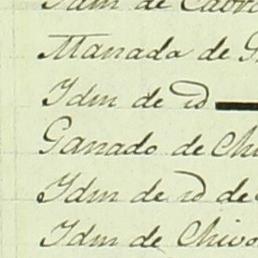 Idm de Cabr
Manada de
Idm de id
Ganado de Chi
Idm de id de
Idm de Chivo